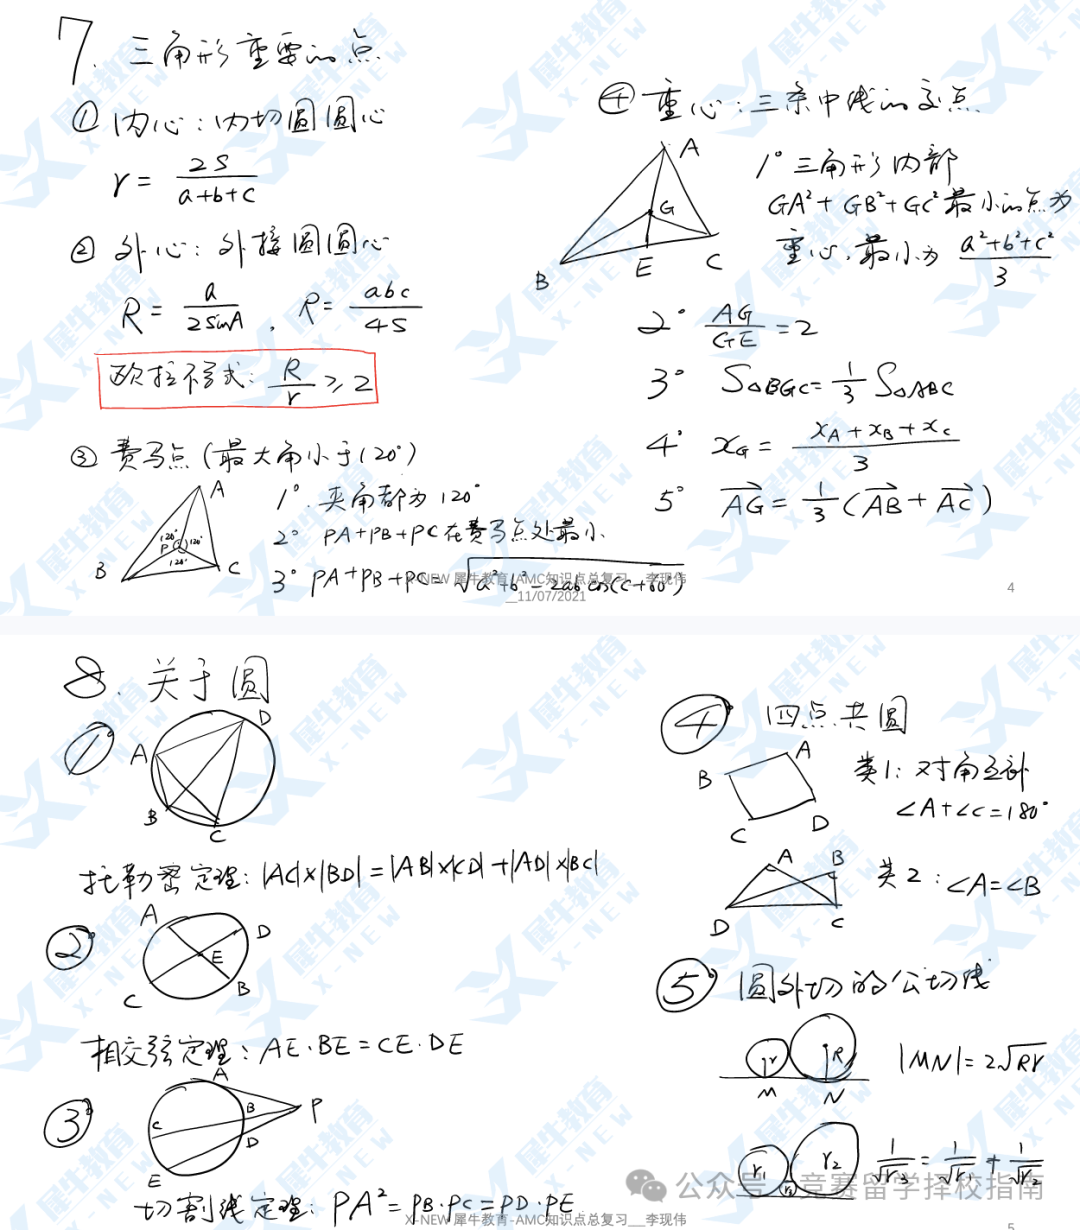 7. 三角形重要的点
① 内心：内切圆圆心
r = 2S / a+b+c
② 外心：外接圆圆心
R = a / 2sinA , R = abc / 4S
欧拉不等式：R / r ≥ 2
③ 费马点（最大角小于120°）
A
120°
P
120°
120°
B
C
1° 夹角都为120°
2° PA+PB+PC在费马点处最小
3° PA+PB+PC=√a²+b²-2ab cos(C+60°)
④ 重心：三条中线的交点
A
G
B
E
C
1° 三角形内部
GA²+GB²+GC²最小的点为
重心，最小为 a²+b²+c² / 3
2° AG / GE = 2
3° S△BGC = 1/3 S△ABC
4° xG = xA+xB+xC / 3
5° AG = 1/3 (AB + AC)
X-NEW 犀牛教育-AMC知识点总复习__李现伟
__11/07/2021
4
8. 关于圆
1°
A
D
B
C
托勒密定理：|AC|×|BD|=|AB|×|CD|+|AD|×|BC|
2°
A
D
E
C
B
相交弦定理：AE·BE=CE·DE
3°
A
B
P
C
D
E
切割线定理：PA²=PB·PC=PD·PE
4° 四点共圆
A
B
C
D
类1：对角互补
∠A+∠C=180°
A
B
D
C
类2：∠A=∠B
5° 圆外切的公切线
r
R
M
N
|MN|=2√Rr
r1
r2
r3
1/√r3 = 1/√r1 + 1/√r2
公众号
竞赛留学择校指南
X-NEW 犀牛教育-AMC知识点总复习__李现伟
5
犀牛教育
X-NEW